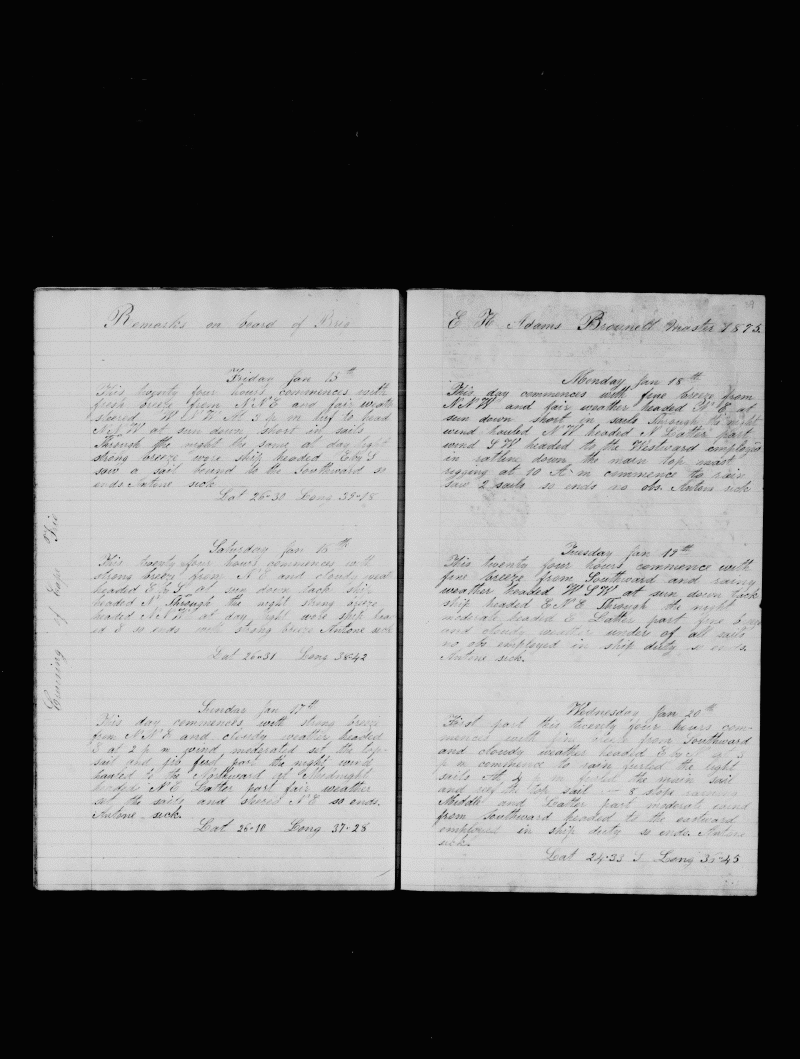 Remarks on board of Brig
Friday Jan 15th
This twenty four hours commences with
fresh breeze from N N E and fair weath
steared W S W At 3 p m luf to head
N N W at sun down short in sails
Through the night the same at day light
strong breeze wore ship headed E by S
saw a sail bound to the Southward so
ends Antone sick
Lat 26-30 Long 39-18
Saturday Jan 16th
This twenty four hours commences with
strong breeze from N E and cloudy
headed E by S at sun down tack ship
headed N Through the night strong breeze
headed N N W at day light wore ship hea
ed E so ends with strong breeze Antone sick
Lat 26-31 Long 38-42
Sunday Jan 17th
This day commences with strong breeze
from N N E and cloudy weather headed
E at 2 p m wind moderated set the top
sail and jib ferd part the night wind
hauled to the Northward at Midnight
headed N E Latter part fair weather
set the sails and steared N E so ends
Antone sick
Lat 26-10 Long 37-28
E H Adams Brownell Master 1875
Monday Jan 18th
This day commences with fine breeze from
N N W and fair weather headed N E at
sun down short in sails Through the night
wind hauled N W headed N Latter part
wind S W headed to the Westward employed
in ratline down the main top mast
rigging at 10 A m commence to rain
saw 2 sails so ends no obs. Antone sick
Tuesday Jan 19th
This twenty four hours commence with
fine breeze from Southward and rainy
weather headed W S W at sun down tack
ship headed E N E Through the night
moderate headed E Latter part fine
and cloudy weather under of all sails
no obs employed in ship duty so ends
Antone sick.
Wednesday Jan 20th
First part this twenty four hours com-
mences with fine breeze from Southward
and cloudy weather headed E by N at 3
p m commence to rain furled the light
sails At p m furled the main sail
and reef the top sail - 8
Middle and Latter part moderate wind
from Southward headed to the eastward
employed in ship duty so ends Antone
sick.
Lat 24-33 S Long 35-45